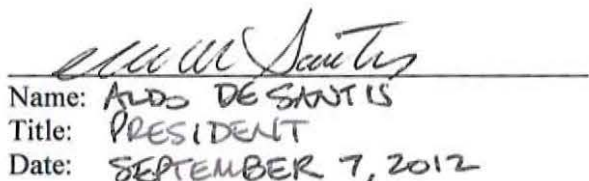 Name: ALDO DE SANTIS
Title: PRESIDENT
Date: SEPTEMBER 7, 2012